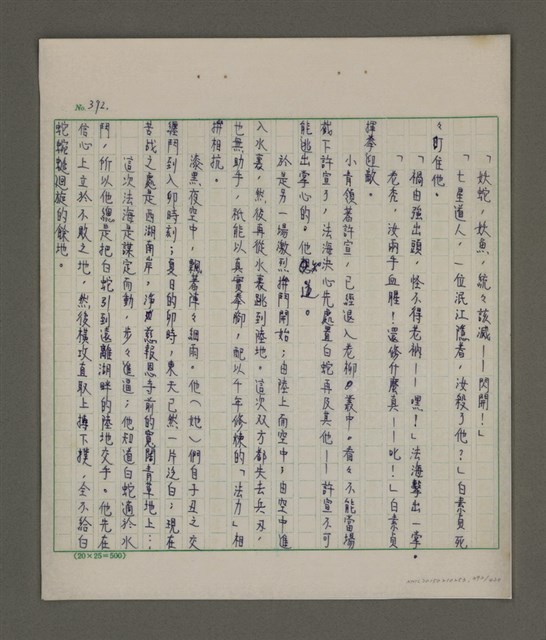 No. 392.
「妖蛇，妖魚，統々該滅——閃開！」
「七星道人，一位泯江隱者，汝殺了他？」白素貞死
々盯住他。
「禍由強出頭，怪不得老衲——嘿？」法海擊出一掌。
「老禿，汝兩手血腥！還修什麼真——叱！」白素貞
揮拳迎敵。
小青傍著許宣，已經退入老柳叢中。看々不能當場
截下許宣了，法海決心先處置白蛇再及其他——許宣不可
能逃出掌心的。他知道。
於是另一場激烈拚鬥開始；由陸上而空中；由空中進
入水裏，然後再從水裏跳到陸地。這次双方都失去兵刃，
也無助手，祇能以真實拳腳，配以千年修練的「法力」相
拚相抗。
漆黑夜空中，飄著陣々細雨。他（她）們自子丑之交
纏鬥到入卯時刻；夏日的卯時，東天已然一片泛白；現在
苦战之處是西湖南岸，淨慈報恩寺前的寬闊青草地上…
這次法海是謀定而動，步々進逼；他知道白蛇適於水
鬥，所以他總是把白蛇引到遠離湖畔的陸地交手。他先在
信心上立於不敗之地，然後橫攻直取上搏下撲，全不給白
蛇蜿蜒迴旋的餘地。
(20×25＝500)